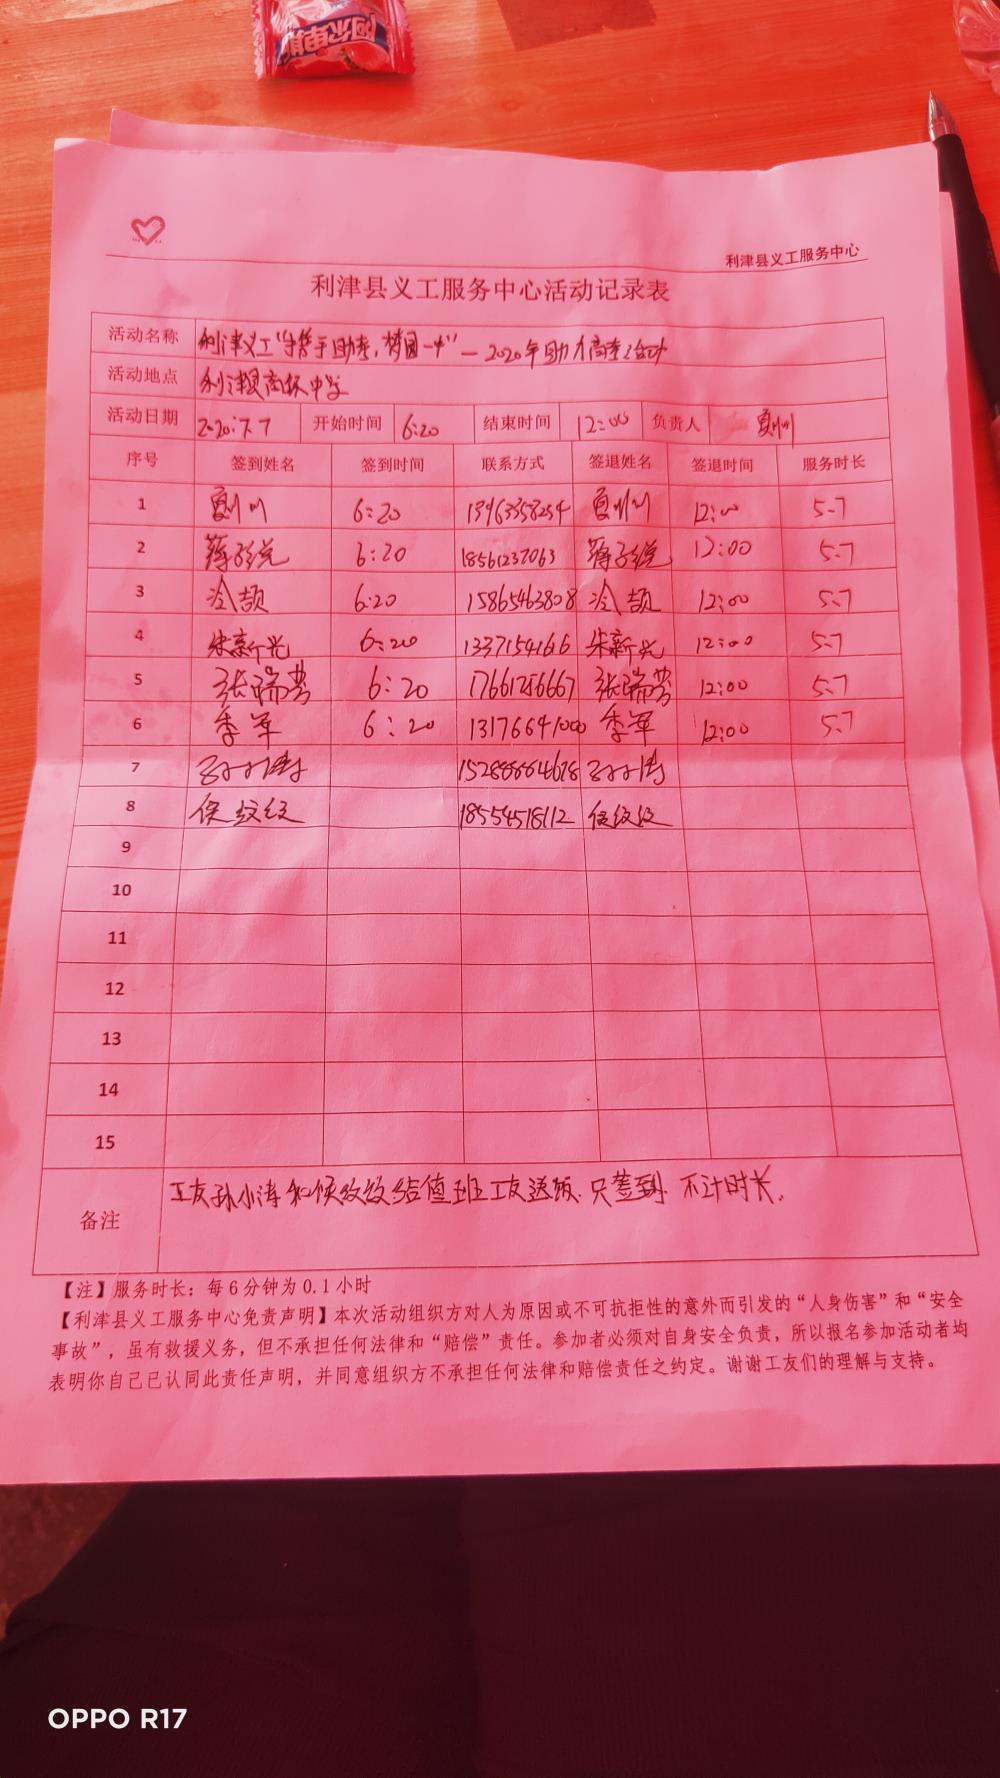 利津县义工服务中心
利津县义工服务中心活动记录表
活动名称 利津义工"携手助考,梦圆一中"—2020年助力高考活动
活动地点 利津县高级中学
活动日期 2020.7.7 开始时间 6:20 结束时间 12:00 负责人
序号 签到姓名 签到时间 联系方式 签退姓名 签退时间 服务时长
1 6:20 12:00 5.7
2 6:20 18561237063 12:00 5.7
3 冷颉 6:20 15865463808 冷颉 12:00 5.7
4 朱新兴 6:20 朱新兴 12:00 5.7
5 张瑞芳 6:20 17661256667 张瑞芳 12:00 5.7
6 季军 6:20 13176641000 季军 12:00 5.7
7 孙小涛 孙小涛
8 侯纹纹 18554518112 侯纹纹
9
10
11
12
13
14
15
备注 工友孙小涛和侯纹纹给值班工友送饭,只签到,不计时长.
【注】服务时长:每6分钟为0.1小时
【利津县义工服务中心免责声明】本次活动组织方对人为原因或不可抗拒性的意外而引发的“人身伤害”和“安全
事故”,虽有救援义务,但不承担任何法律和“赔偿”责任。参加者必须对自身安全负责,所以报名参加活动者均
表明你自己已认同此责任声明,并同意组织方不承担任何法律和赔偿责任之约定。谢谢工友们的理解与支持。
OPPO R17